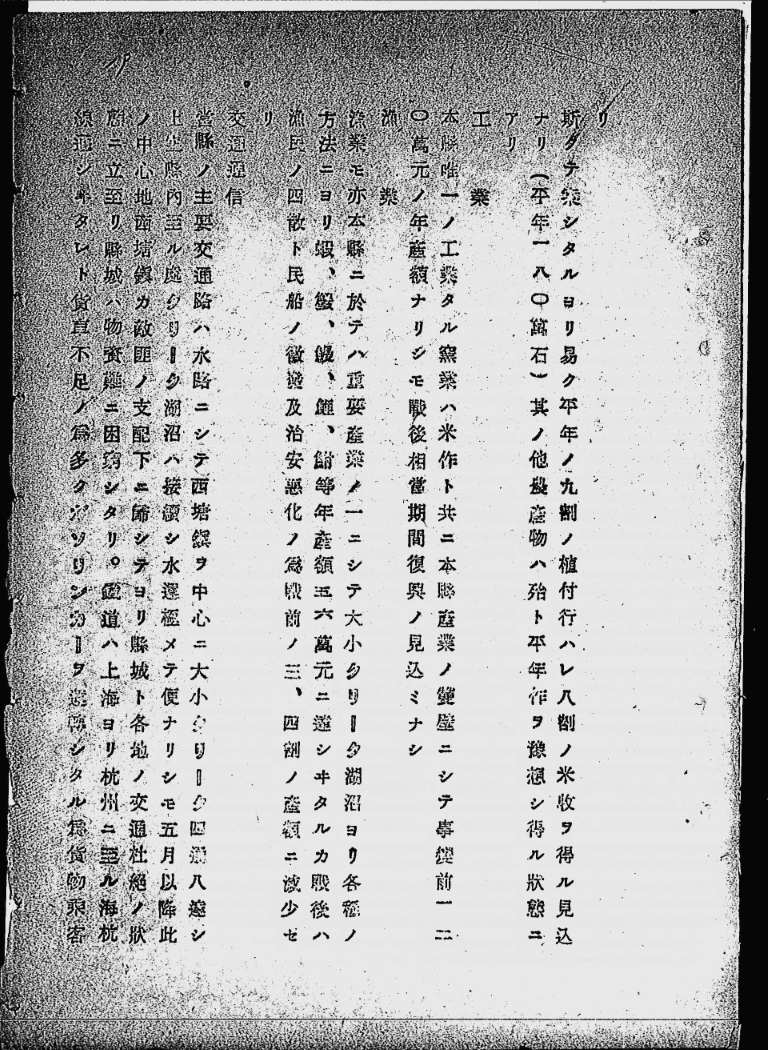 リ
斯クテ案シタルヨリ易ク平年ノ九割ノ植付行ハレ八割ノ米收ヲ得ル見込
ナリ(平年一八〇萬石)其ノ他農產物ハ殆ト平年作ヲ豫想シ得ル狀態ニ
アリ
工業
本縣唯一ノ工業タル窯業ハ米作ト共ニ本縣產業ノ雙璧ニシテ事變前一二
〇萬元ノ年產額ナリシモ戰後相當期間復興ノ見込ミナシ
漁業
漁業モ亦本縣ニ於テハ重要產業ノ一ニシテ大小クリーク湖沼ヨリ各種ノ
方法ニヨリ蝦、、、、等年產額五六萬元ニ達シヰタルカ戰後ハ
漁民ノ四散ト民船ノ徵發及治安惡化ノ爲戰前ノ三、四割ノ產額ニ減少セ
リ
交通通信
當縣ノ主要交通路ハ水路ニシテ西塘鎭ヲ中心ニ大小クリーク四通八達シ
上生縣內至ル處クリーク湖沼ハ接續シ水運極メテ便ナリシモ五月以降此
ノ中心地西塘鎭カ敵匪ノ支配下ニ歸シテヨリ縣城ト各地ノ交通杜絕ノ狀
態ニ立至リ縣城ハ物資難ニ困窮シタリ。鐵道ハ上海ヨリ杭州ニ至ル海杭
線通シヰタレト貨車不足ノ爲多クガソリンカーヲ運轉シタル爲貨物乘客